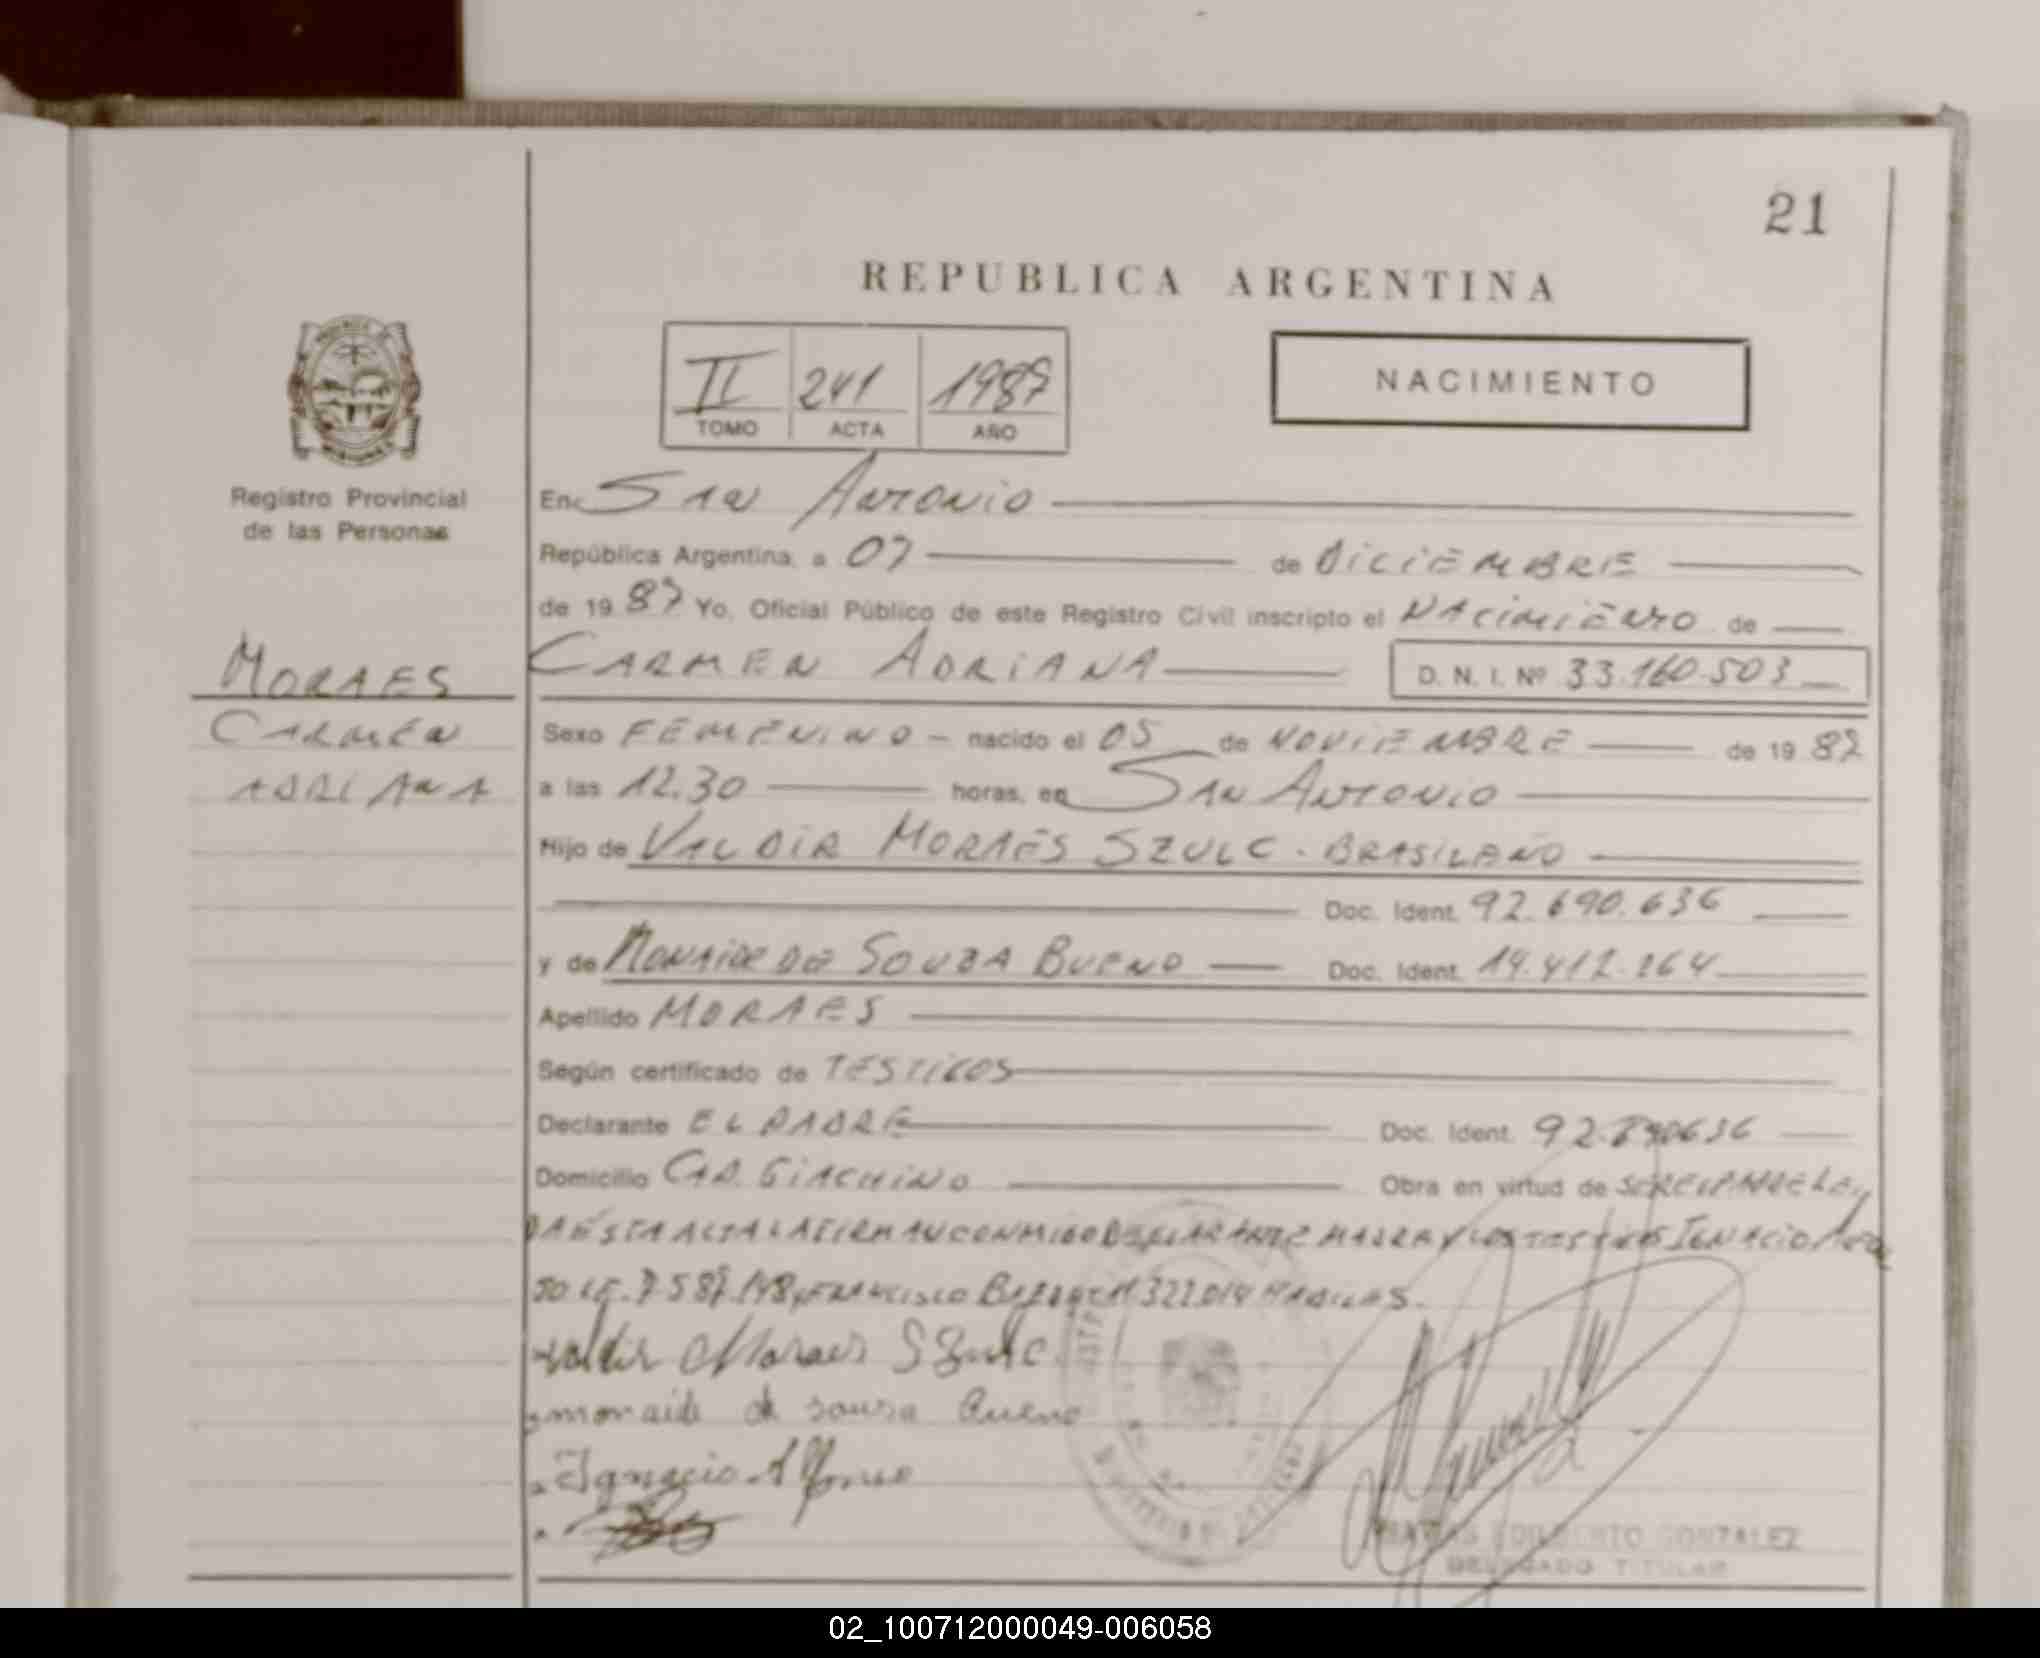 21
REPUBLICA ARGENTINA
II 241 1987
TOMO ACTA AÑO
NACIMIENTO
Registro Provincial
de las Personas
En SAN ANTONIO
República Argentina, a 07 de DICIEMBRE
de 19 87 Yo, Oficial Público de este Registro Civil inscripto el NACIMIENTO de
MORAES
CARMEN
ADRIANA
CARMEN ADRIANA D. N. I. Nº 33.160.503
Sexo FEMENINO - nacido el 05 de NOVIEMBRE de 19 87
a las 12.30 horas, en SAN ANTONIO
Hijo de VALDIR MORAES SZULC - BRASILEÑO
Doc. Ident. 92.690.636
y de MONAIDE DE SOUZA BUENO Doc. Ident. 14.412.264
Apellido MORAES
Según certificado de TESTIGOS
Declarante EL PADRE Doc. Ident. 92.690636
Domicilio CAP. GIACHINO Obra en virtud de SER EL PADRE LEI
DA ESTA ACTA LA FIRMAN CONMIGO DECLARANTE MADRE Y LOS TESTIGOS IGNACIO
SO LE. 7.587.148 y FRANCISCO 322.014 HABILES.
Valdir Moraes Szulc
monaide de souza Bueno
Ignacio Alfonso
EDILBERTO GONZALEZ
DELEGADO TITULAR
02_100712000049-006058